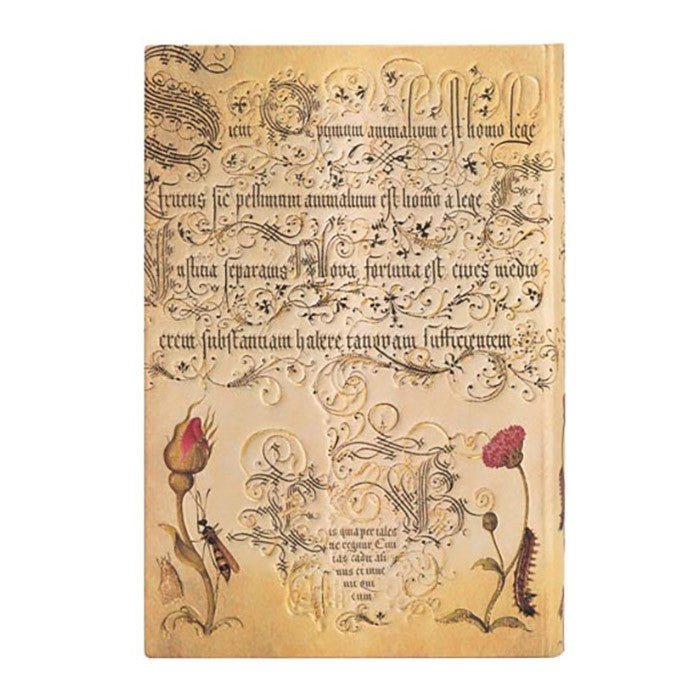 Sicut Optimum animalium est homo lege
fruens sic pessimum animalium est homo a lege
Iustitia separatus Nova fortuna est cives medio
crem substantiam habere tanquam sufficientem
is quia per tales
ne regnur Civi
tas cadit ali
nus et inve
nit qui
cum